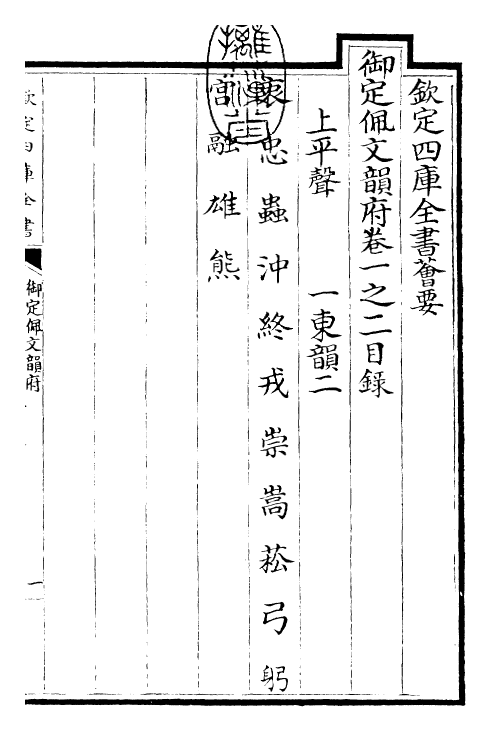 欽定四庫全書薈要
御定佩文韻府卷一之二目録
上平聲　一東韻二
衷忠蟲沖終戎崇嵩菘弓躬
宫融雄熊
欽定四庫全書
御定佩文韻府
一